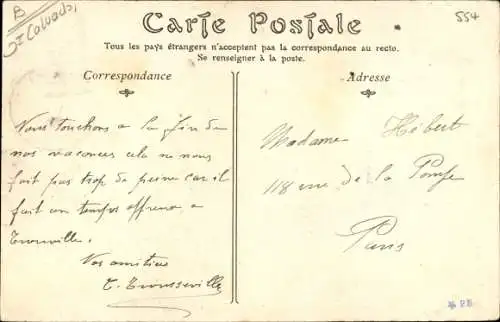 B
Calvados
554
Carte Postale
Tous les pays étrangers n'acceptent pas la correspondance au recto.
Se renseigner à la poste.
Correspondance
Nous touchons a la fin de
nos vacances cela ne nous
fait pas trop de peine car il
fait un temps affreux a
Trouville.
Vos amities
Adresse
Madame Hébert
118 rue de la Pompe
Paris